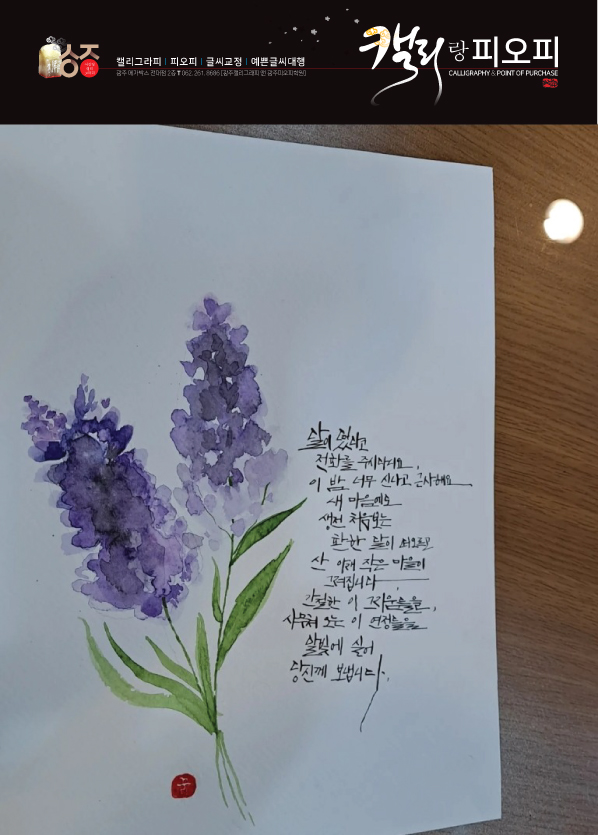 캘리그라피 | 피오피 | 글씨교정 | 예쁜글씨대행
광주 메가박스 전대점 2층 T 062. 261. 8686
캘리랑피오피
CALLIGRAPHY & POINT OF PURCHASE
달이 떴다고
전화를 주시다니요,
이 밤 너무 신나고 근사해요
내 마음에도
생전 처음보는
환한 달이 떠오르고
산 아래 작은 마을이
그려집니다
간절한 이 그리움들을,
사무쳐 오는 이 연정들을
달빛에 실어
당신께 보냅니다.